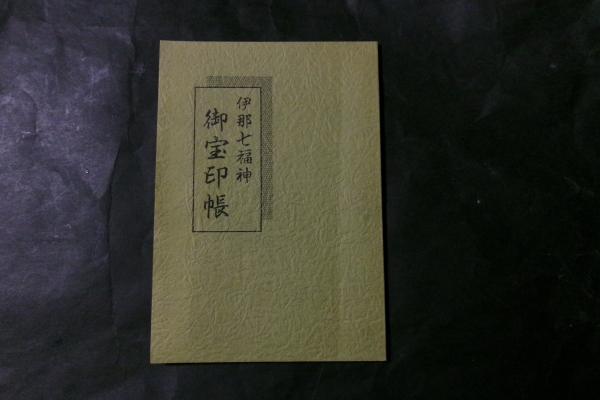 伊那七福神
御宝印帳